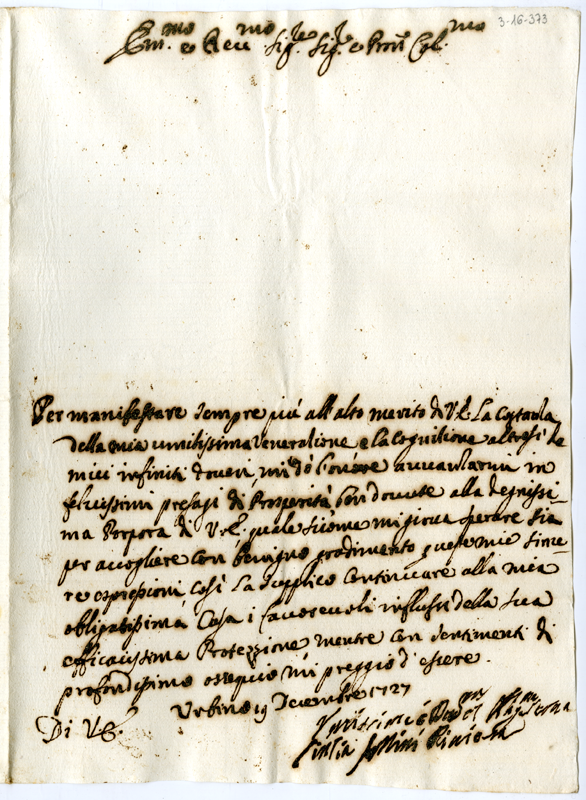 3-16-373
Em.mo e Reu.mo Sig.re Sig.re e Pron Col.mo
Per manifestare sempre più all'alto merito di V.E. La Costanza
della mia umilissima Veneratione e la Cognitione altresì de
miei infiniti doveri mi dò l'onore avvanzarmi in
felicissimi presagi di Prosperità ben dovute alla degnissi-
ma Porpora di V.E. quale siccome mi giova sperare sia
per accogliere con benigno gradimento queste mie since-
re espressioni così La supplico continuare alla mia
obligatissima Casa i favorevoli influssi della sua
efficacissima Protezzione mentre con sentimenti di
profondissimo ossequio mi preggio d'essere
Urbino 19 Decembre 1727
Di V.E.